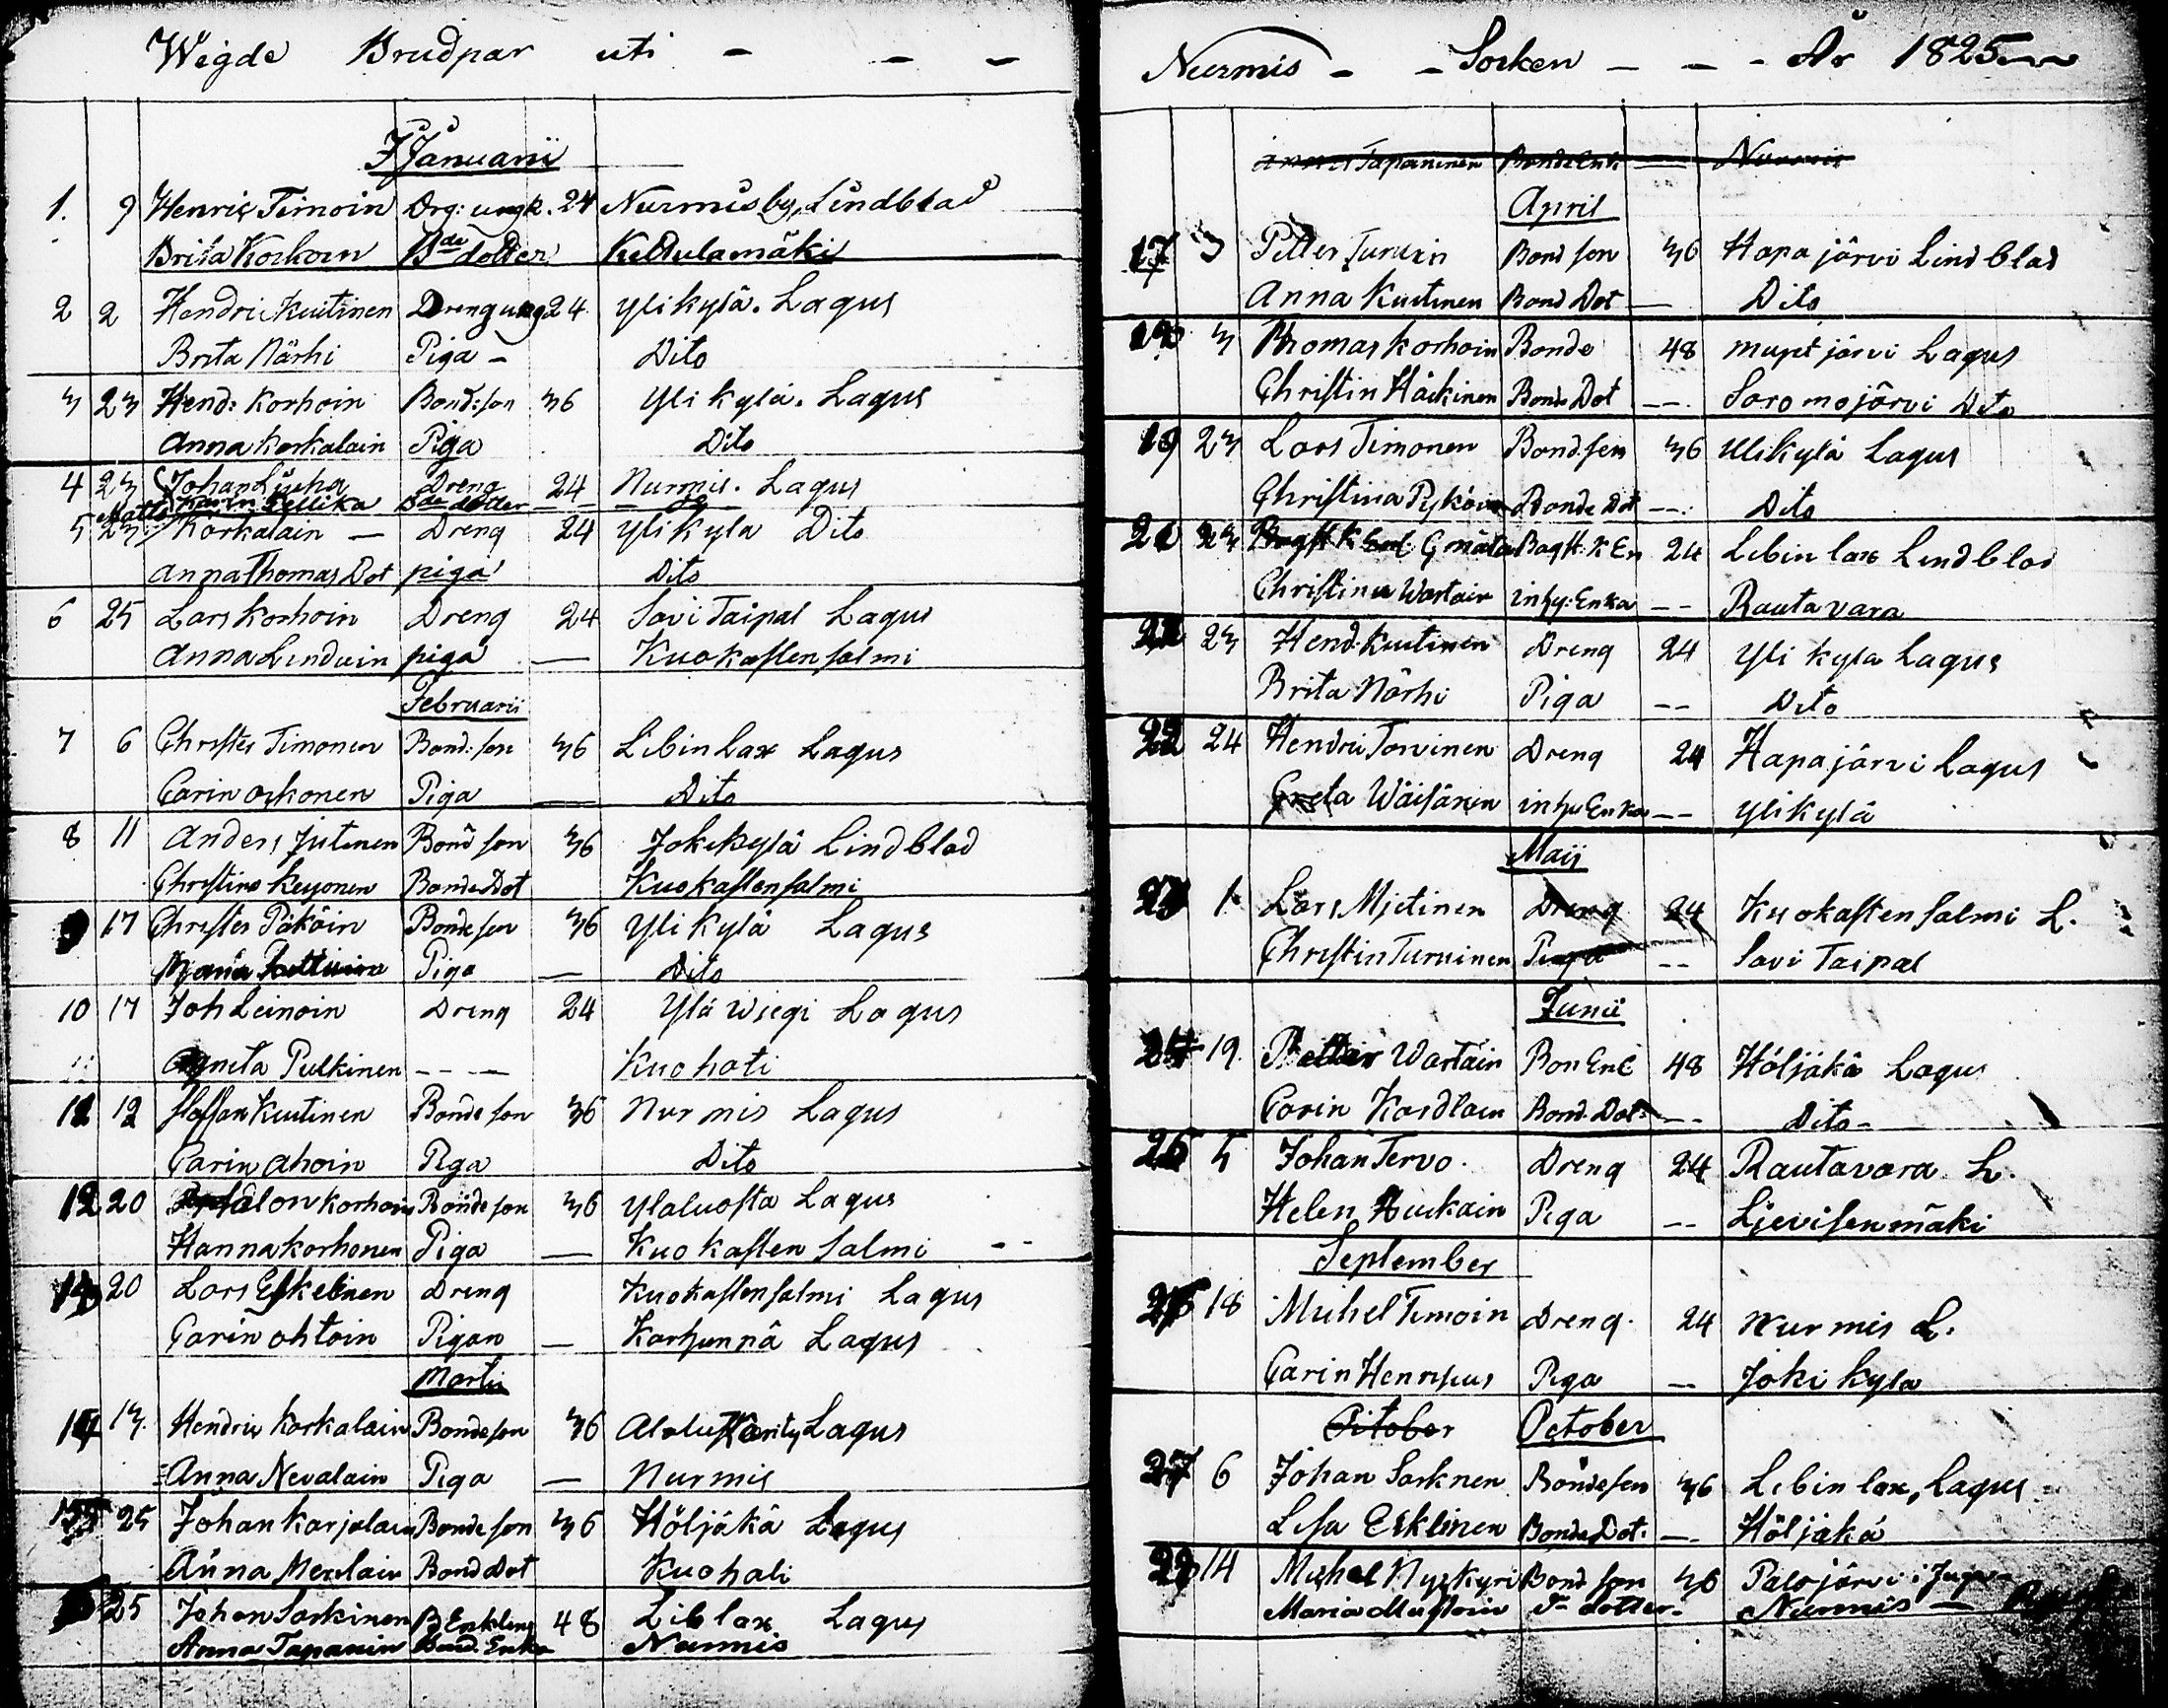 Wigde Brudpar uti - - -
Januarii
1. 9 Henric Timoin Drg: ungk. 24 Nurmisby, Lindblad
Brita Korhoin Bde dotter Kellulamäki
2 2 Hendric Kuitinen Dreng ung 24 Ylikylä. Lagus
Brita Närhi Piga - Dito
3 23 Hend: Korhoin Bond:son 36 Yli kylä. Lagus
Anna Korkalain Piga Dito
4 23 Johan Dreng 24 Nurmis. Lagus
Karin Bde dotter - - do -
5 23 Matts Korkalain - Dreng 24 Yli kyla Dito
Anna Thomas Dot piga Dito
6 25 Lars Korhoin Dreng 24 Savi Taipal Lagus
Anna piga — Kuokastensalmi
Februarii
7 6 Christer Timonen Bond:son 36 Libinlax Lagus
Carin Piga — Dito
8 11 Anders Jutinen Bond son 36 Jokikylä Lindblad
Christina Keyonen Bonde Dot Kuokastensalmi
9 17 Christer Päkäin Bonde son 36 Yli Kylä Lagus
Piga — Dito
10 17 Joh Leinoin Dreng 24 Ylä Wiegi Lagus
Agneta Pulkinen - - — Kuohati
11 12 Staffan Kuitinen Bonde son 36 Nurmis Lagus
Carin Ahoin Piga Dito
12 20 Korhoin Bonde son 36 Ylaluosta Lagus
Hanna Korhonen Piga — Kuokasten salmi - -
13 20 Lars Eskelinen Dreng Kuokastensalmi Lagus
Carin Ohtoin Pigan — Karhunnä Lagus
Martii
14 13. Hendric Korkalain Bondeson 36 Lagus
Anna Nevalain Piga — Nurmis
15 25 Johan Karjalain Bonde son 36 Höljäkä Lagus
Anna Bond Dot Kuohati
25 Johan Sarkinen B Enkling 48 Liblax Lagus
Anna Tapanin Bond. Enka Nurmis
Nurmis - - Socken - - - År 1825
Tapaninen Bonde Enk — Nurmis
April
17 3 Petter Turuin Bond son 36 Hapajärvi Lindblad
Anna Kuitinen Bond Dot — Dito
18 3 Thomas Korhoin Bonde 48 Lagus
Christin Häckinen Bonde Dot — Saromojärvi Dito
19 23 Lars Timonen Bond.son 36 Ulikylä Lagus
Christina Bonde Dot —: Dito
20 23 24 Libin lax Lindblad
Christina Wartain inhy: Enka -- Rautavara
21 23 Hend. Kuitinen Dreng 24 Yli kyla Lagus
Brita Närhi Piga -- Dito
22 24 Hendric Torvinen Dreng 24 Hapajärvi Lagus
Greta Wäisänen inhy Enka -- Ylikylä
Maij
23 1 Lars Mjetinen Dreng 24 Kuokasten salmi L.
Christin Turuinen Piga -- Savi Taipal
Junii
24 19. Petter Wartain Bon Enk 48 Höljäkä Lagus
Carin Bond. Dot. -- Dito -
25 5 Johan Tervo. Dreng 24 Rautavara L.
Helen Piga -- Ljevisenmäki
September
26 18 Michel Timoin Dreng. 24 Nurmis L.
Carin Piga — Joki kyla
October October
27 6 Johan Sarknen Bondeson 36 Libin lax, Lagus
Lisa Esklinen Bonde Dot. — Höljäkä
28 14 Michel Nyykyri Bond son 36 Palojärvi i Juga
Maria dotter - Nurmis —